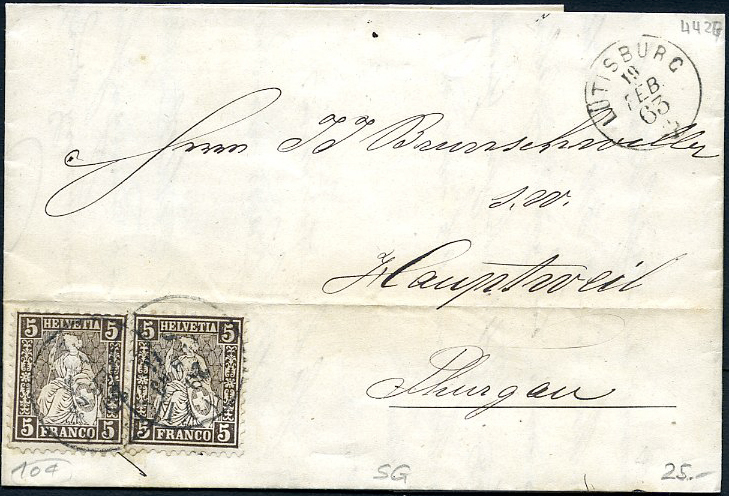 442B
LÜTISBURG
19
FEB.
63
Herrn JJ Brunschweiler
s. w.
Hauptweil
Thurgau
5 HELVETIA 5
5 FRANCO 5
5 HELVETIA 5
5 FRANCO 5
10¢
SG
25.-